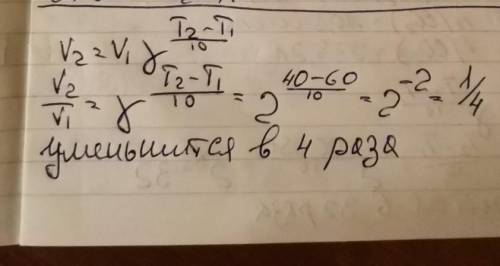 V₂ = V₁ γ^((T₂-T₁)/10)
V₂/V₁ = γ^((T₂-T₁)/10) = 2^((40-60)/10) = 2^(-2) = 1/4
уменьшится в 4 раза